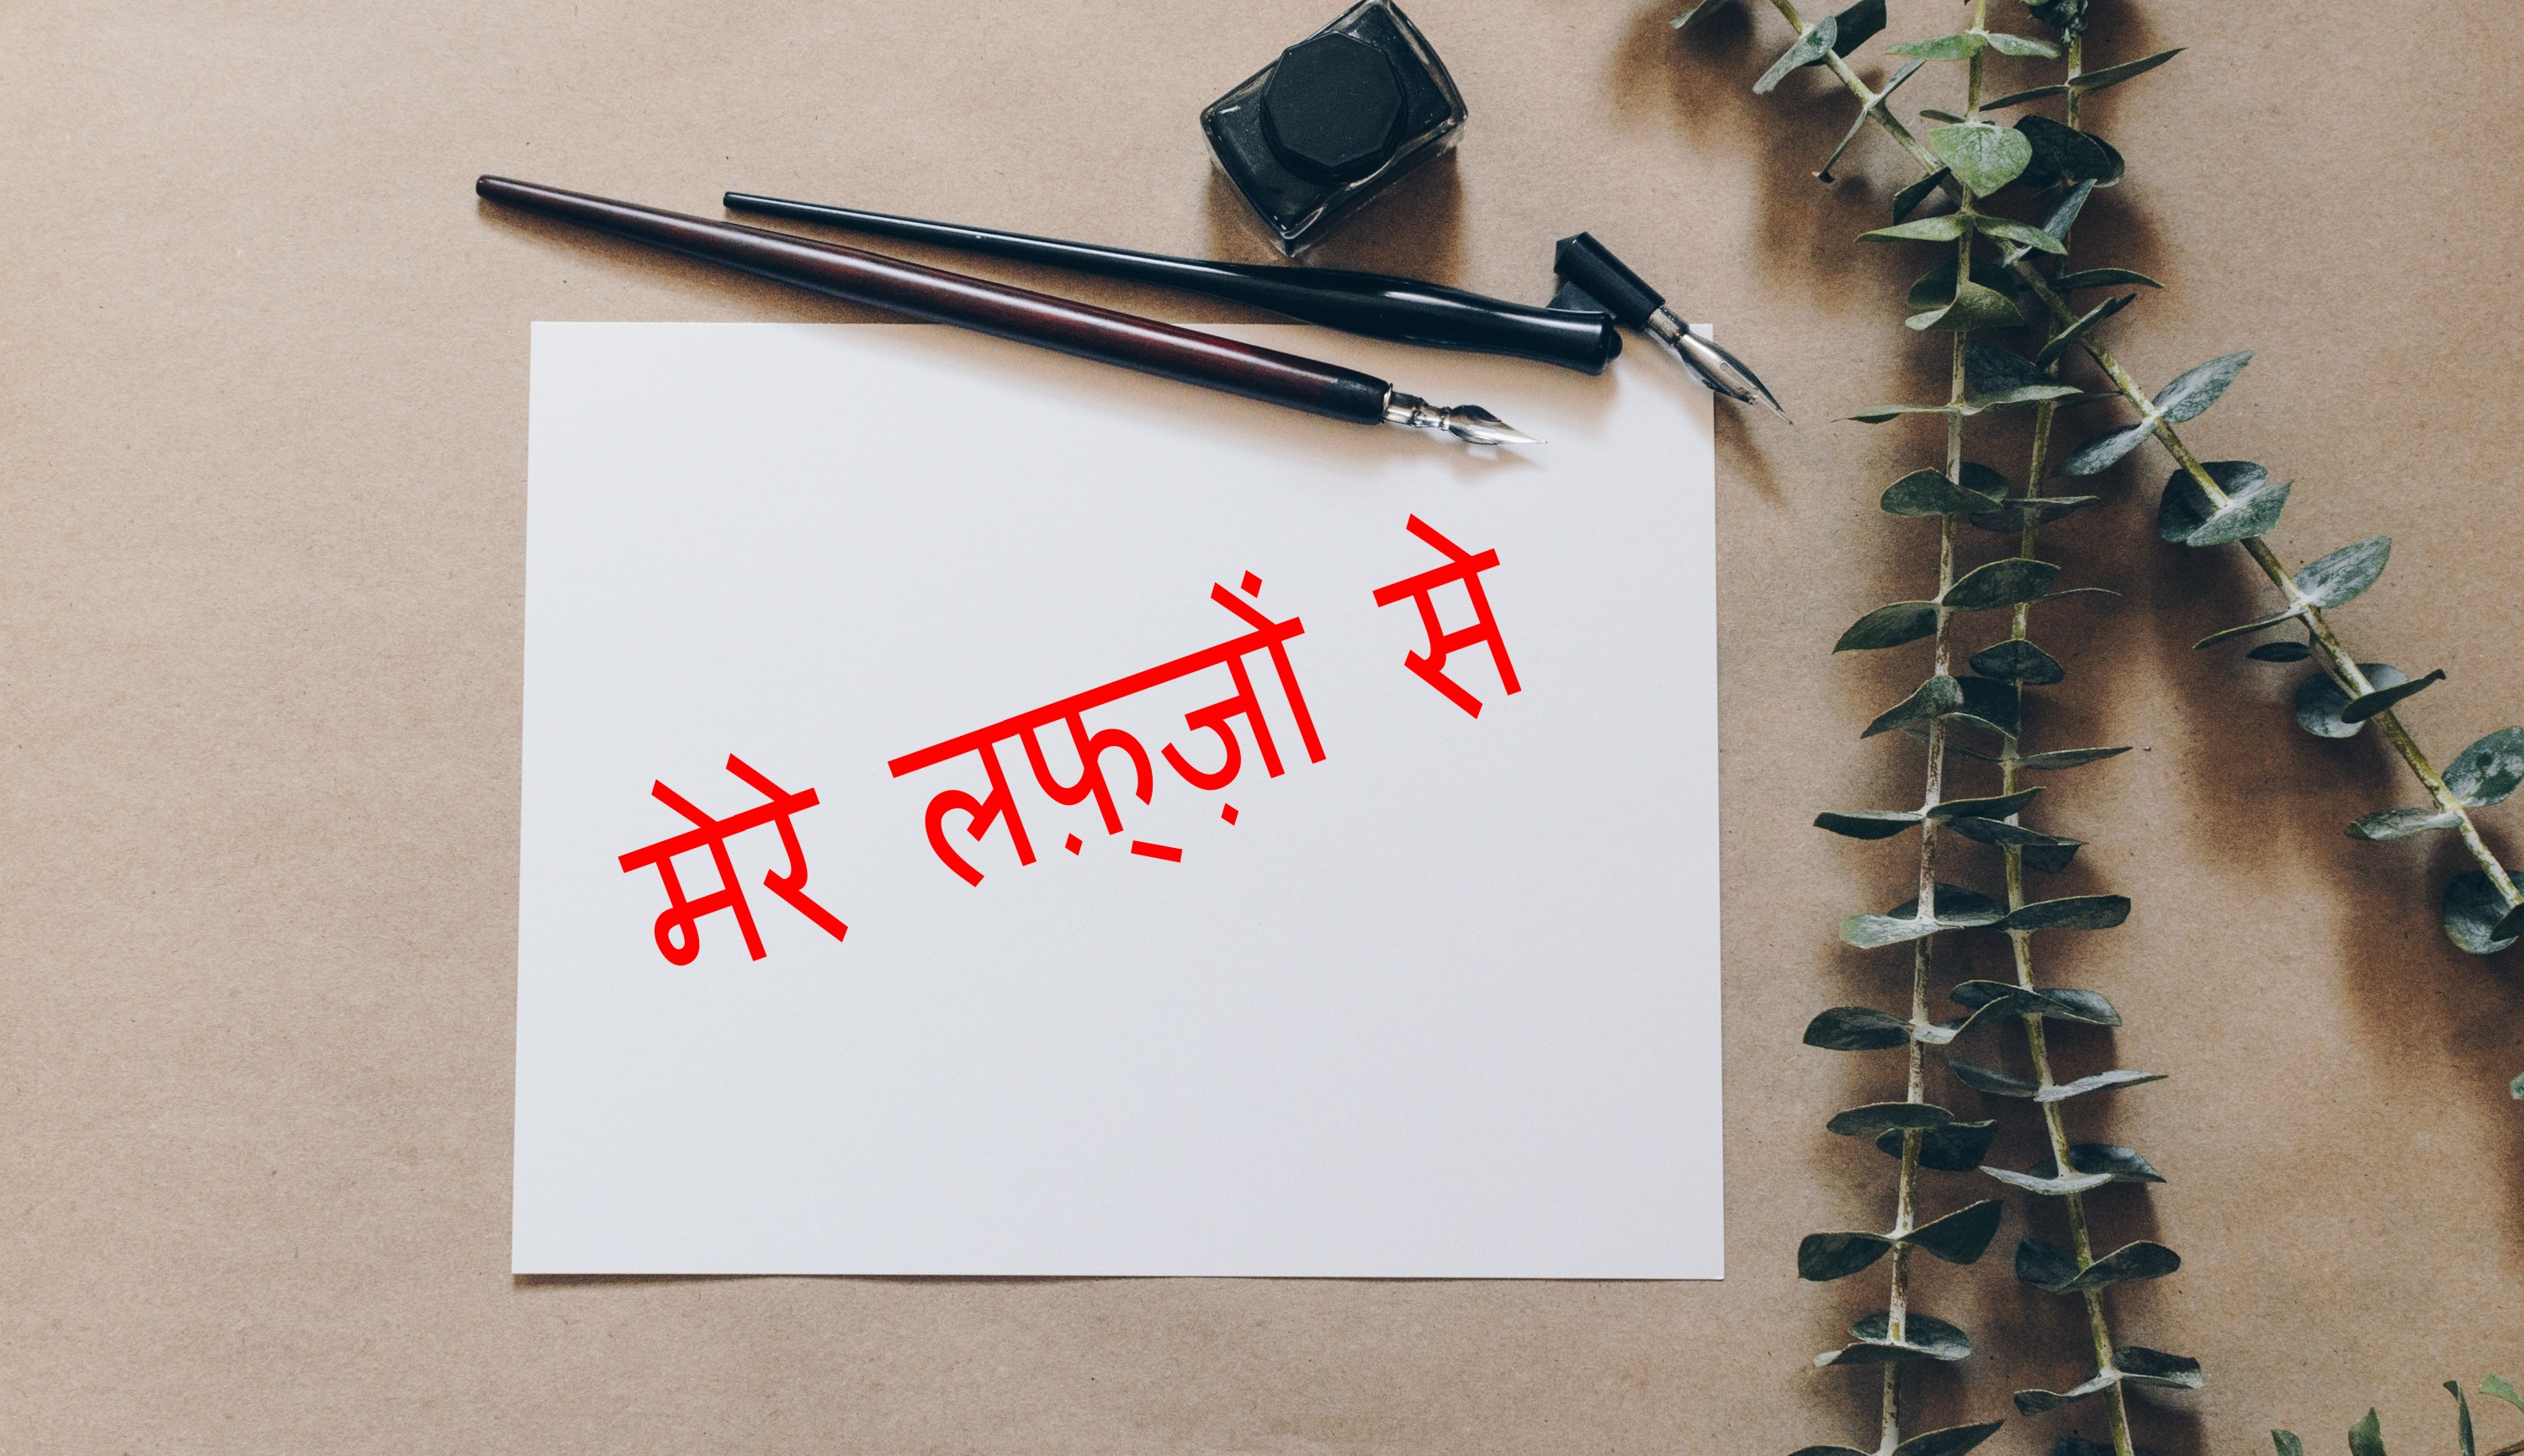 मेरे लफ़्ज़ों से